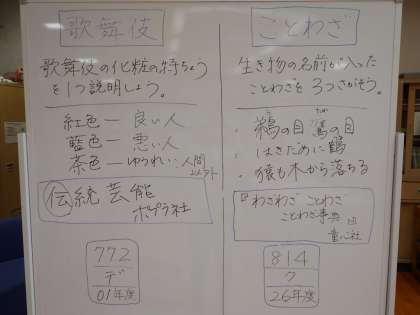 歌舞伎
歌舞伎の化粧の特ちょう
を1つ説明しよう。
紅色ー良い人
藍色ー悪い人
茶色ーゆうれい・人間以外
伝統芸能
ポプラ社
772
デ
01年度
ことわざ
生き物の名前が入った
ことわざを3つさがそう。
・鵜の目鷹の目
・はきだめに鶴
・猿も木から落ちる
わざわざことわざ
ことわざ事典
童心社
814
ワ
26年度